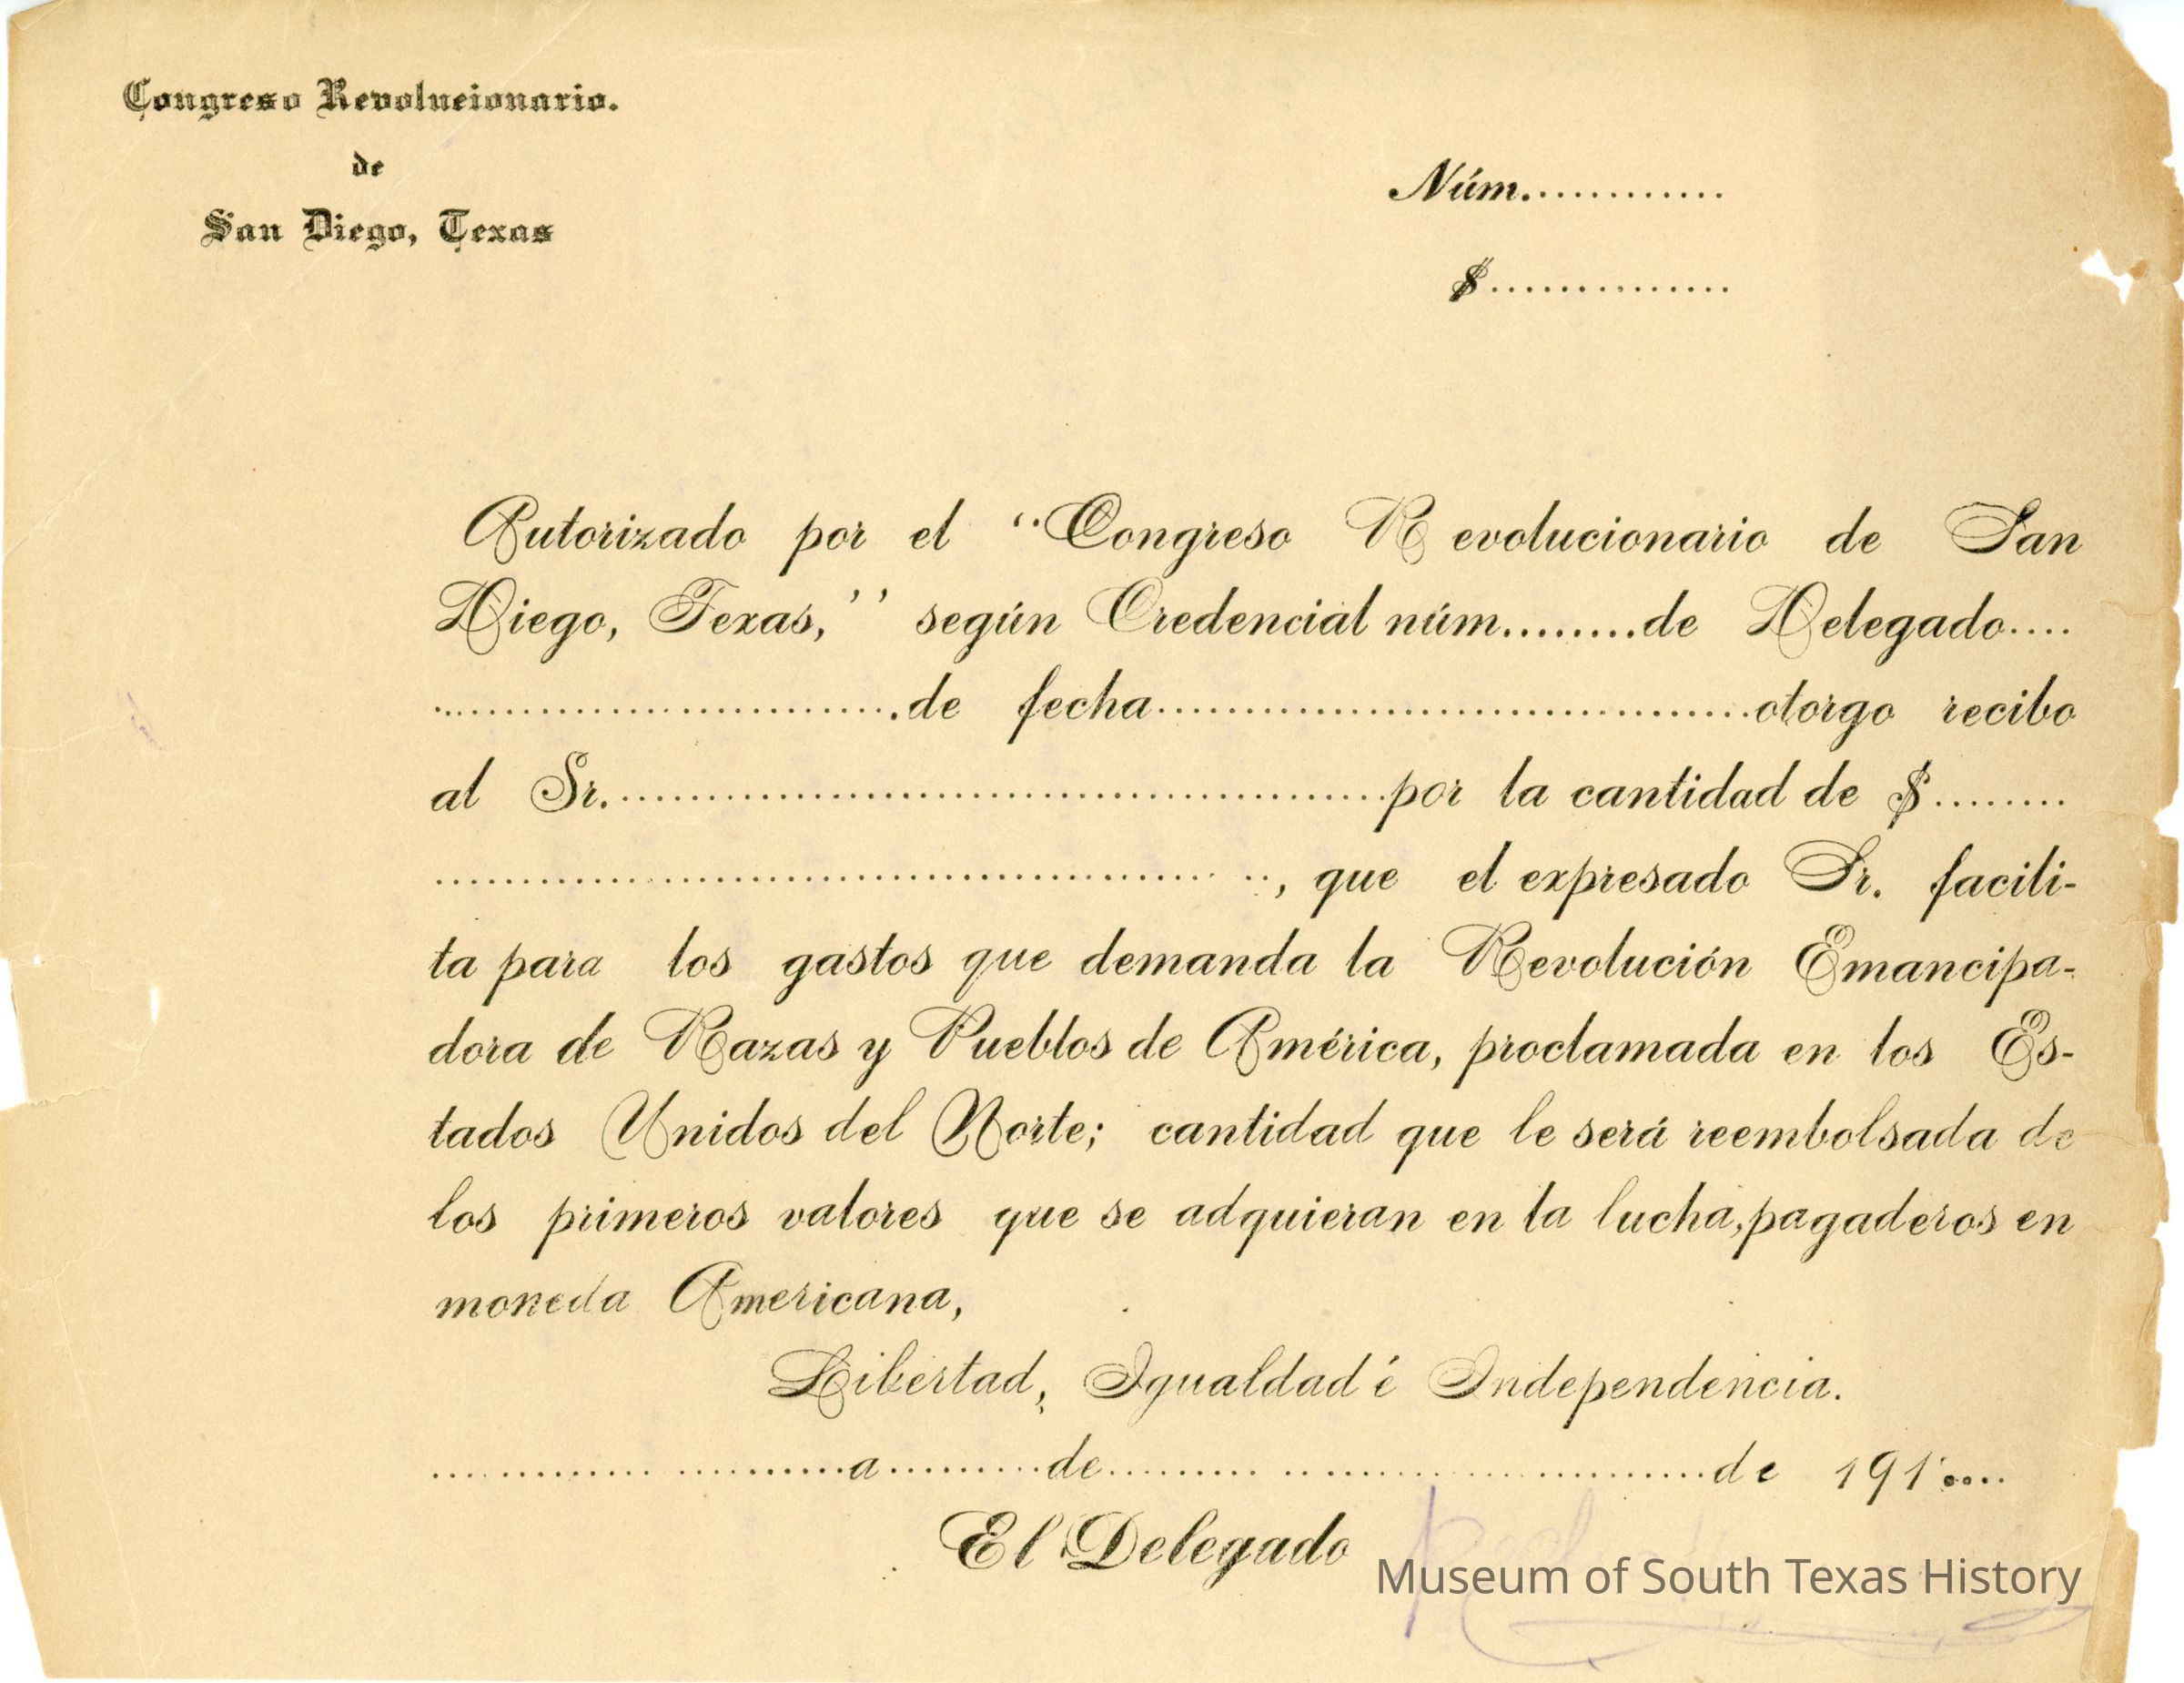 Congreso Revolucionario.
de
San Diego, Texas
Núm.............
$.................
Autorizado por el "Congreso Revolucionario de San
Diego, Texas,'' según Credencial núm.........de Delegado....
................................de fecha..........................................otorgo recibo
al Sr.......................................................por la cantidad de $.........
......................................................... .., que el expresado Sr. facili-
ta para los gastos que demanda la Revolución Emancipa-
dora de Razas y Pueblos de América, proclamada en los Es-
tados Unidos del Norte; cantidad que le será reembolsada de
los primeros valores que se adquieran en la lucha, pagaderos en
moneda Americana,
Libertad, Igualdad é Independencia.
.... ........... ............a...........de........... ..............................de 191.....
El Delegado
Museum of South Texas History